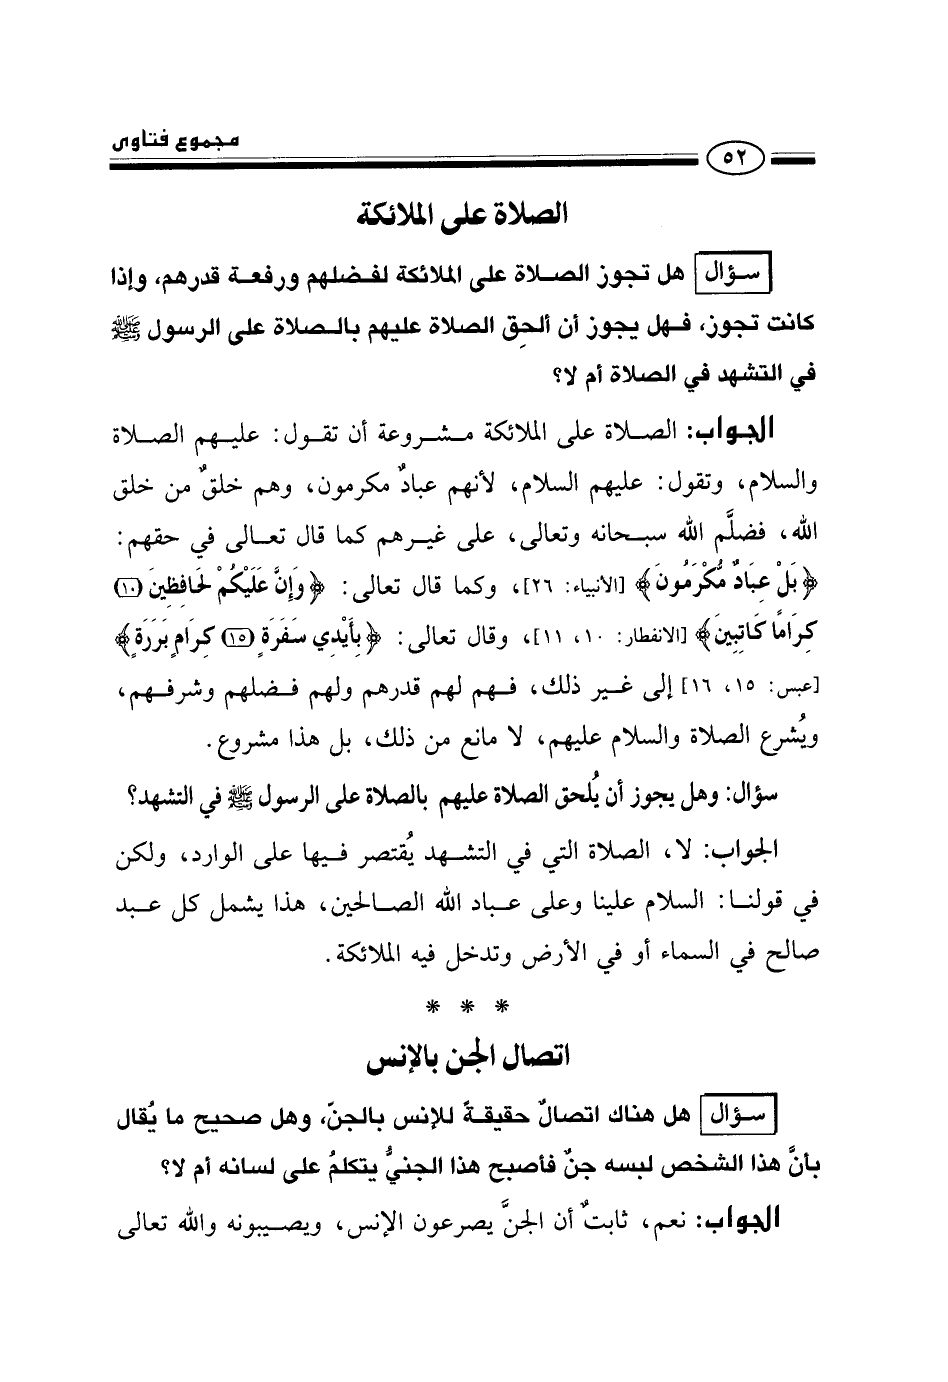 مجموع فتاوى
٥٢
الصلاة على الملائكة
سؤال هل تجوز الصلاة على الملائكة لفضلهم ورفعة قدرهم، وإذا
كانت تجوز، فهل يجوز أن ألحِق الصلاة عليهم بالصلاة على الرسول ﷺ
في التشهد في الصلاة أم لا؟
الجواب: الصلاة على الملائكة مشروعة أن تقول: عليهم الصلاة
والسلام، وتقول: عليهم السلام، لأنهم عبادٌ مكرمون، وهم خلقٌ من خلق
الله، فضلَّم الله سبحانه وتعالى، على غيرهم كما قال تعالى في حقهم:
﴿بَلْ عِبَادٌ مُّكْرَمُونَ﴾ [الأنبياء: ٢٦]، وكما قال تعالى: ﴿وَإِنَّ عَلَيْكُمْ لَحَافِظِينَ (١٠)
كِرَامًا كَاتِبِينَ﴾ [الانفطار: ١٠، ١١]، وقال تعالى: ﴿بِأَيْدِي سَفَرَةٍ (١٥) كِرَامٍ بَرَرَةٍ﴾
[عبس: ١٥، ١٦] إلى غير ذلك، فهم لهم قدرهم ولهم فضلهم وشرفهم،
ويُشرع الصلاة والسلام عليهم، لا مانع من ذلك، بل هذا مشروع.
سؤال: وهل يجوز أن يُلحق الصلاة عليهم بالصلاة على الرسول ﷺ في التشهد؟
الجواب: لا، الصلاة التي في التشهد يُقتصر فيها على الوارد، ولكن
في قولنا: السلام علينا وعلى عباد الله الصالحين، هذا يشمل كل عبد
صالح في السماء أو في الأرض وتدخل فيه الملائكة.
* * *
اتصال الجن بالإنس
سؤال هل هناك اتصالٌ حقيقةً للإنس بالجنّ، وهل صحيح ما يُقال
بأنَّ هذا الشخص لبسه جنٌ فأصبح هذا الجنيُّ يتكلمُ على لسانه أم لا؟
الجواب: نعم، ثابتٌ أن الجنَّ يصرعون الإنس، ويصيبونه والله تعالى